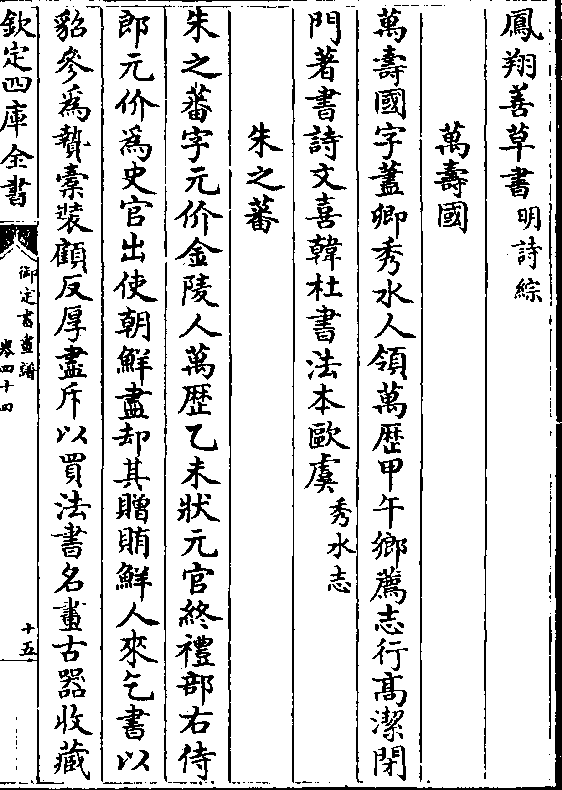 鳳翔善草書明詩綜
萬壽國
萬壽國字藎卿秀水人領萬歷甲午鄉薦志行髙潔閉
門著書詩文喜韓杜書法本歐虞秀水志
朱之蕃
朱之蕃字元价金陵人萬歴乙未狀元官終禮部右侍
郎元价為史官出使朝鮮盡却其贈賄鮮人來乞書以
貂參為贄橐裝顧反厚盡斥以買法書名畫古器收藏
欽定四庫全書
御定書畫譜
卷四十四
十五